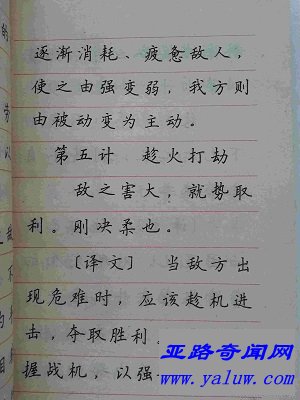 逐渐消耗、疲惫敌人，
使之由强变弱，我方则
由被动变为主动。
第五计 趁火打劫
敌之害大，就势取
利。刚决柔也。
〔译文〕 当敌方出
现危难时，应该趁机进
击，夺取胜利。
握战机，以强
亚路奇闻网
www.yaluw.com